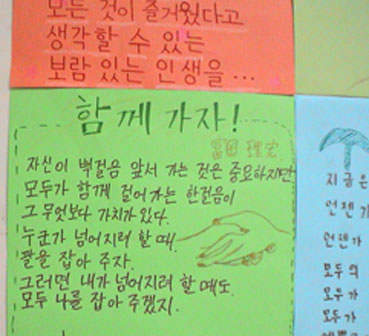 모든 것이 즐거웠다고
생각할 수 있는
보람 있는 인생을...
함께 가자!
자신이 백걸음 앞서 가는 것은 중요하지만
모두가 함께 걸어가는 한걸음이
그 무엇보다 가치가 있다.
누군가 넘어지려 할 때.
팔을 잡아 주자.
그러면 내가 넘어지려 할 때도
모두 나를 잡아 주겠지.
지금은
언젠가
언젠가
모두의
모두가
모두가